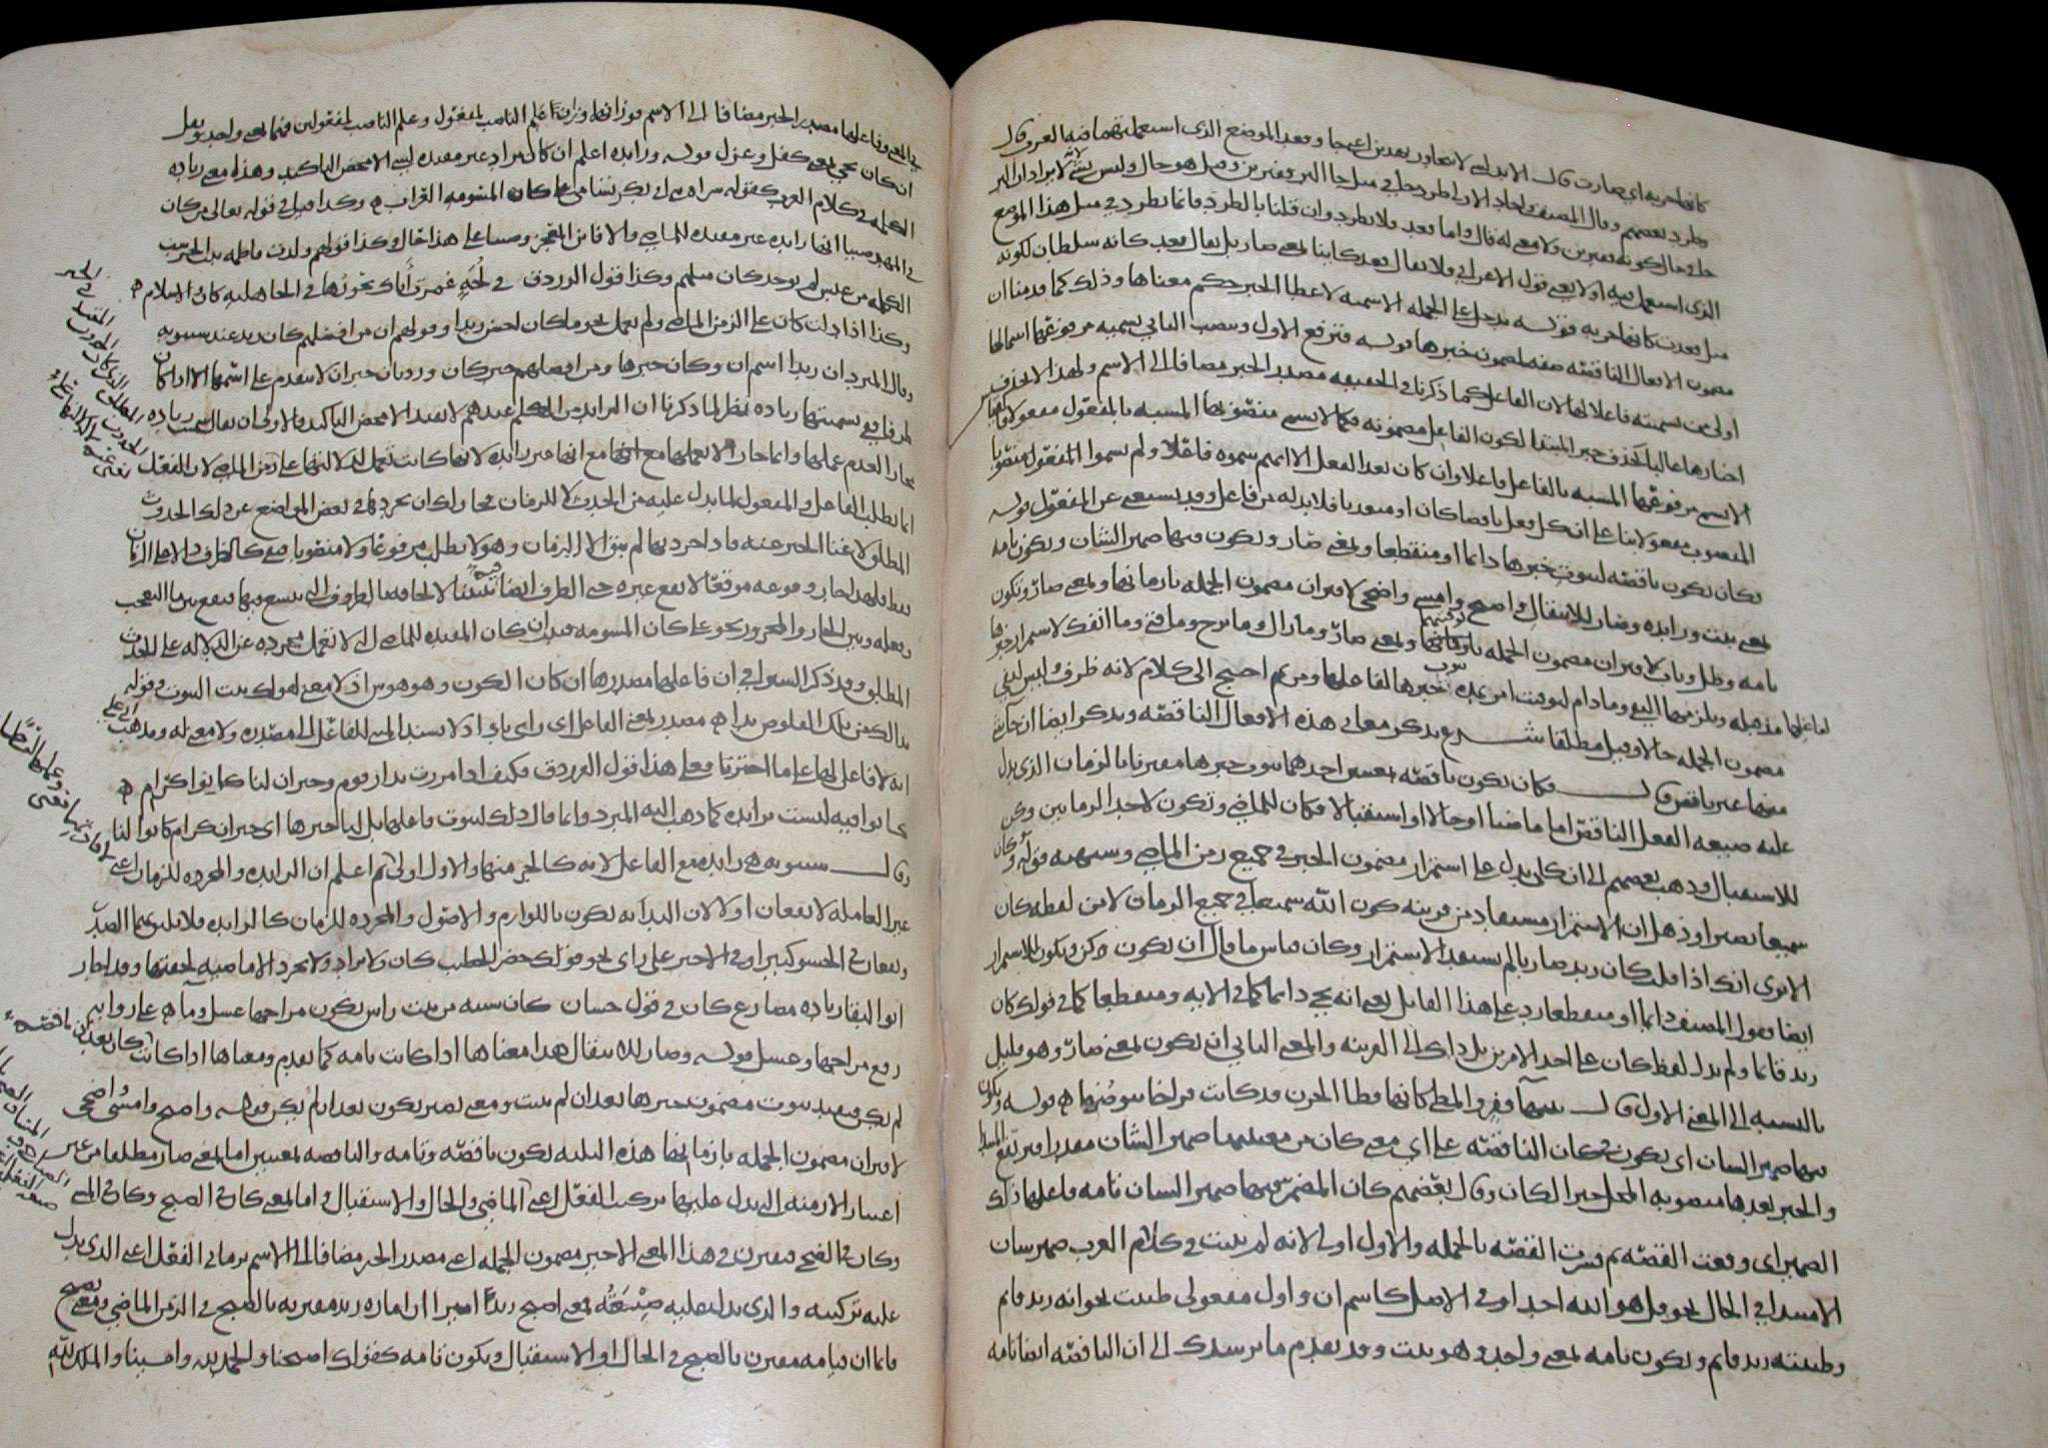 كانها حربة اي صارت قال الاندلسي لا يتجاوز بهذين اعني جا وقعد الموضع الذي استعملتهما فيه العرب وقال
وطرد بعضهم وقال المصنف واجاد الاولى طرد جا في مثل جا البر قفيزين وصاعين وقيل هو حال وليس بشيء لانه لا يراد ان البر
جا في حال كونه قفيزين ولا معنى له قال واما قعد فلا يطرد وان قلنا بالطرد فانما يطرد في مثل هذا الموضع
الذي استعمل فيه اولا يعني قول الاعرابي فلا يقال قعد كاتبا بمعنى صار بل يقال قعد كانه سلطان لكونه
مثل قعدت كانها حربة قوله تدخل على الجملة الاسمية لاعطا الخبر حكم معناها وذلك كما قدمنا ان
مضمون الافعال الناقصة صفة لمضمون خبرها قوله فترفع الاول وتنصب الثاني تسمية مرفوعها اسما لها
اولى من تسميته فاعلا لها لان الفاعل كما ذكرنا في الحقيقة مصدر الخبر مضافا الى الاسم ولهذا لا تحذف
اخبارها غالبا كحذف خبر المبتدا لكون الفاعل مضمونه فكما لا يسمى منصوبها المشبه بالمفعول مفعولا فالقياس
الا يسمى مرفوعها المشبه بالفاعل فاعلا وان كان بعد الفعل الا انهم سموه فاعلا ولم يسموا المنصوب
المنصوب مفعولا بنا على ان كل فعل ناقصا كان او متعديا فلا بد له من فاعل وقد يستغنى عن المفعول قوله
فكان تكون ناقصة لثبوت خبرها دائما او منقطعا وبمعنى صار ويكون فيها ضمير الشان وتكون تامة
بمعنى ثبت وزائدة وصار للانتقال واصبح وامسى واضحى لاقتران مضمون الجملة بازمانها وبمعنى صار وتكون
تامة وظل وبات لاقتران مضمون الجملة بوقتيهما وبمعنى صار وما زال وما برح وما فتئ وما انفك لاستمرار خبرها
لفاعلها مذ قبله ويلزمها النفي وما دام لتوقيت امر بمدة ثبوت خبرها لفاعلها ومن ثم احتاج الى كلام لانه ظرف وليس لنفي
مضمون الجملة حالا وقيل مطلقا شرع يذكر معاني هذه الافعال الناقصة ويذكر ايضا ان جاءت
منها غير ناقص قال فكان تكون ناقصة بمعنيين احدهما ثبوت خبرها مقترنا بالزمان الذي يدل
عليه صيغة الفعل الناقص اما ماضيا او حالا او استقبالا فكان للماضي ويكون لاحد الزمانين وكن
للاستقبال وذهب بعضهم الى ان كان يدل على استمرار مضمون الخبر في جميع زمن الماضي وشبهته قوله وكان
سميعا بصيرا وذهل ان الاستمرار مستفاد من قرينة كون الله سميعا في جميع الزمان لا من لفظة كان
الا ترى انك اذا قلت كان زيد ضاربا لم يستفد الاستمرار وكان قياس ما قال ان تكون كن ويكون للاستمرار
ايضا فقول المصنف دائما او منقطعا رد على هذا القائل يعني انه يجي دائما كما في الاية ومنقطعا كما في قولك كان
زيد قائما ولم يدل لفظ كان على احد الامرين بل ذاك الى القرينة والمعنى الثاني ان تكون بمعنى صار وهو قليل
بالنسبة الى المعنى الاول قال بتيهاء قفر والمطي كانها قطا الحزن قد كانت فراخا بيوضها ه قوله ويكون
فيها ضمير الشان اي يكون في كان الناقصة على اي معنى كان من معنييها ضمير الشان مقدرا فيرتفع المبتدا
والخبر بعدها منصوبة المحل خبرا لكان وقال بعضهم كان المضمر فيها ضمير الشان تامة فاعلها ذلك
الضمير اي وقعت القصة ثم فسرت القصة بالجملة والاول اولى لانه لم يثبت في كلام العرب ضمير شان
الا مبتدا في الحال نحو قل هو الله احد او في الاصل كاسم ان واول مفعولي ظننت نحو انه زيد قائم
وظننته زيد قائم وتكون تامة بمعنى واحد وهو ثبت وقد تقدم ما يرشدك الى ان الناقصة ايضا تامة
في المعنى وفاعلها مصدر الخبر مضافا الى الاسم فوزانهما وزان علم الناصب لمفعول وعلم الناصب لمفعولين فهما بمعنى واحد وقيل
ان كان يجي بمعنى كفل وغزل قوله وزائدة اعلم ان كان تزاد غير مفيدة لشي الا محض التاكيد وهذا معنى زيادة
الكلمة في كلام العرب كقوله سراة بني ابي بكر تسامى على كان المسومة العراب ه وكذا قيل في قوله تعالى من كان
في المهد صبيا انها زائدة غير مفيدة للماضي والا فاين المعجز وصبيا على هذا حال وكذا قولهم ولدت فاطمة بنت الخرشب
الكملة من عبس لم يوجد كان مثلهم وكذا قول الفرزدق في لجة غمرت اباك بحورها في الجاهلية كان والاسلام ه
وكذا اذا دلت كان على الزمن الماضي ولم تعمل نحو ما كان احسن زيدا وقولهم ان من افضلهم كان زيدا عند سيبويه
وقال المبرد ان زيدا اسم ان وكان خبرها ومن افضلهم خبر كان ورد بان خبر ان لا يتقدم على اسمها الا اذا كان
ظرفا ففي تسميتها زيادة نظر لما ذكرنا ان الزائد من الكلم عندهم لا يفيد الا محض التاكيد فالاولى ان يقال سميت زيادة
مجازا لعدم عملها وانما جاز الا تعملها مع انها غير زائدة لانها كانت تعمل لدلالتها على زمن الماضي لان الفعل
انما يطلب الفاعل والمفعول لما يدل عليه من الحدث لا للزمان فجاز لك ان تجردها في بعض المواضع عن ذلك الحدث
المطلق لاغنا الخبر عنه فاذا جردتها لم يبق الا الزمان وهو لا يطلب مرفوعا ولا منصوبا فبقي كالظرف دالا على الزمان
فقط فلهذا جاز وقوعه موقعا لا يقع غيره حتى الظرف ايضا تشبيها لالحاقه بالظروف التي يتسع فيها فيقع بين ما التعجب
وفعله وبين الجار والمجرور نحو على كان المسومة فثبت ان كان المفيدة للماضي التي لا تعمل مجردة عن الدلالة على الحدث
المطلق وقد ذكر السيرافي ان فاعلها مصدرها ان كان الكون وهو هوس اذ لا معنى لقولك ثبت الثبوت وقوله
بدا لك في تلك القلوص بداء ه مصدر بمعنى الفاعل اي راي باد اذ لا يسند الى للفاعل الى مصدره ولا معنى له ومذهب ابي علي
انه لا فاعل لها على ما اخترنا فعلى هذا قول الفرزدق فكيف اذا مررت بدار قوم وجيران لنا كانوا كرام ه
كانوا فيه ليست بزائدة كما ذهب اليه المبرد وانما قال ذلك لثبوت فاعلها بل لنا خبرها اي جيران كرام كانوا لنا
وقال سيبويه هي زائدة مع الفاعل لانه كالجز منها والاول اولى ثم اعلم ان الزائدة والمجردة للزمان اعني
غير العاملة لا يقعان اولا لان البداية تكون باللوازم والاصول والمجردة للزمان كالزائدة فلا يليق بهما الصدر
ويقعان في الحشو كثيرا وفي الاخير على راي نحو قولك حضر الخطيب كان ولا تزاد ولا تجرد الا ماضيه لخفتها وقد اجاز
ابو البقا زيادة مضارع كان في قول حسان كان سبية من بيت راس يكون مزاجها عسل وماء ه على رواية
رفع مزاجها وعسل قوله وصار للانتقال هذا معناها اذا كانت تامة كما تقدم ومعناها اذا كانت كان بعد ان
لم يكن فتفيد ثبوت مضمون خبرها بعد ان لم يثبت ومعنى تصير يكون بعد ان لم يكن قوله واصبح وامسى واضحى
لاقتران مضمون الجملة بازمانها هذه الثلثة تكون ناقصة وتامة والناقصة بمعنيين اما بمعنى صار مطلقا من غير
اعتبار الازمنة التي يدل عليها تركيب الفعل اعني
وكان في الضحى فيقترن في هذا المعنى الاخير مضمون الجملة اعني مصدر الخبر مضافا الى الاسم بزماني الفعل اعني الذي يدل
عليه تركيبه والذي يدل عليه صيغته فمعنى اصبح زيد اميرا ان امارة زيد مقترنة بالصبح في الزمن الماضي ومعنى يصبح
قائما ان قيامه مقترن بالصبح في الحال او الاستقبال وتكون تامة كقولك اصبحنا والحمد لله وامسينا والملك لله